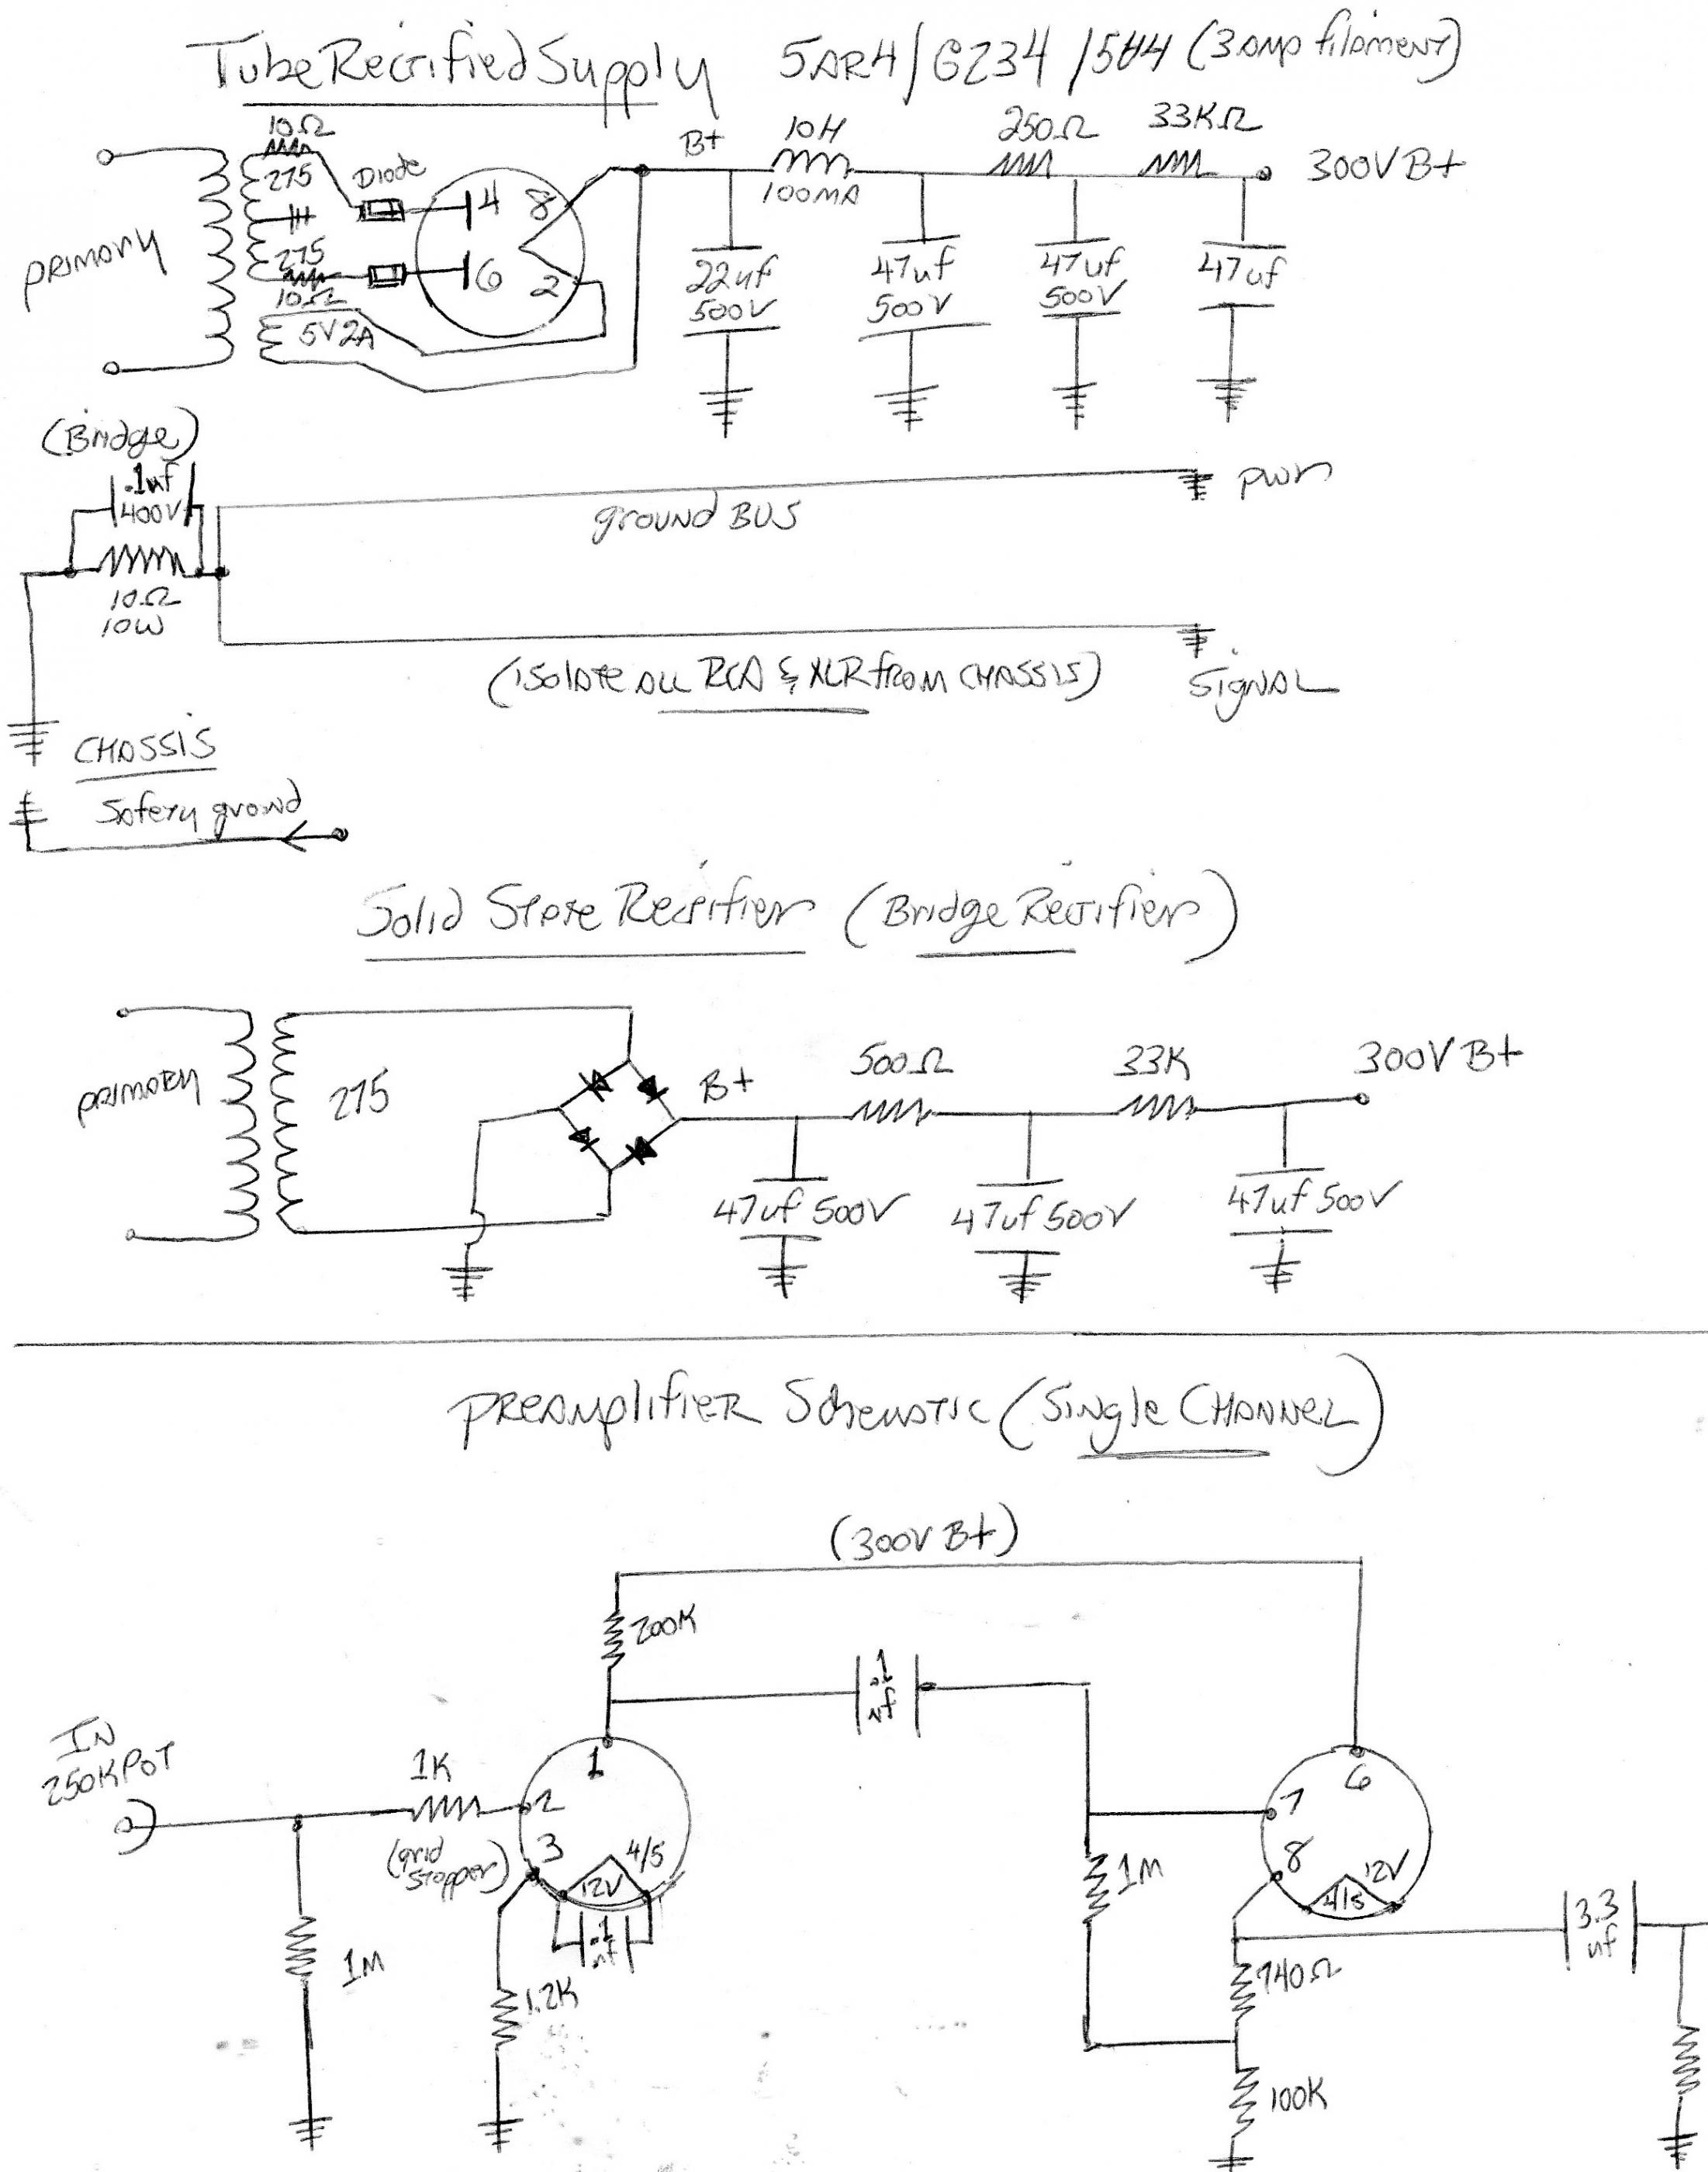 Tube Rectified Supply 5AR4/GZ34/5U4 (3amp filament)
10Ω
275
Diode
275
10Ω
5V 2A
PRIMARY
4
8
6
2
B+
10H
100MA
250Ω
33KΩ
300V B+
22uf
500V
47uf
500V
47uf
500V
47uf
(Bridge)
.1uf
400V
10Ω
10W
ground BUS
pwr
(isolate all RCA & XLR from CHASSIS)
SIGNAL
CHASSIS
Safety ground
Solid State Rectifier (Bridge Rectifier)
primary
275
B+
500Ω
33K
300V B+
47uf 500V
47uf 500V
47uf 500V
PREAmplifiER Schematic (Single CHANNEL)
(300V B+)
200K
.1
uf
IN
250K POT
1K
(grid
stopper)
1
2
3
4/5
12V
.1
uf
1M
1.2K
6
7
8
12V
4/5
1M
740Ω
100K
3.3
uf